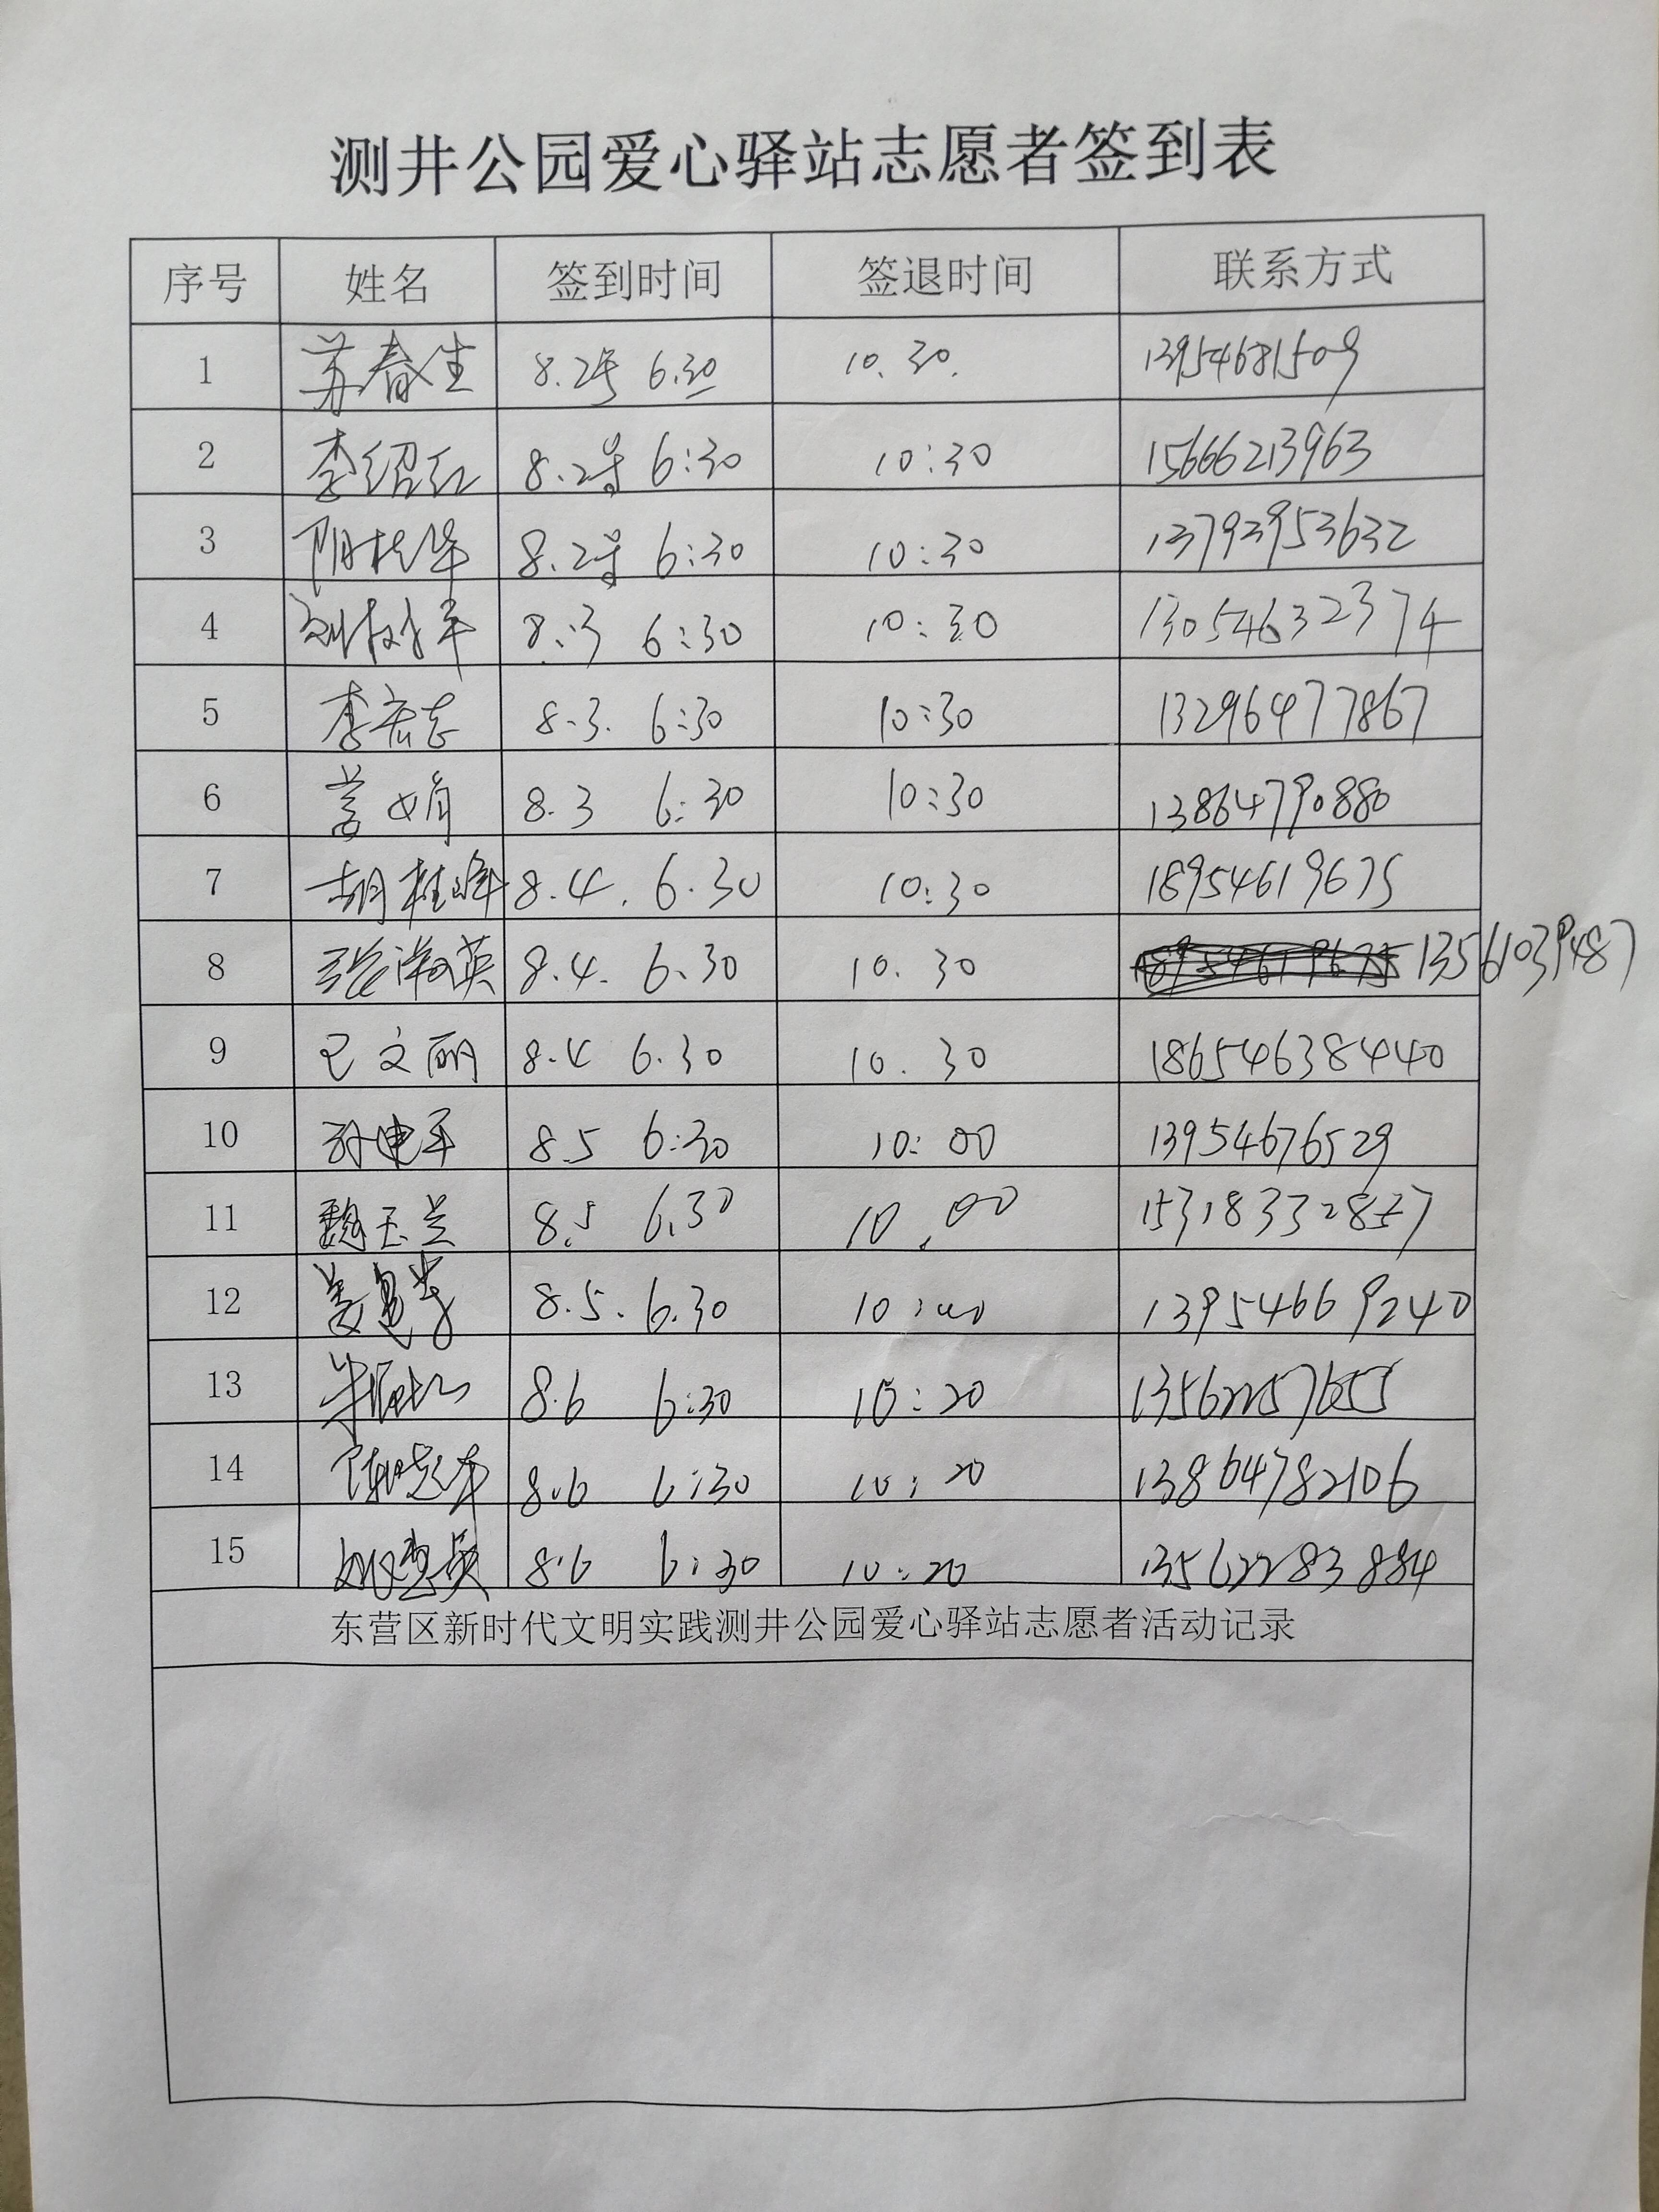 测井公园爱心驿站志愿者签到表
序号 姓名 签到时间 签退时间 联系方式
1 苏春生 8.2号 6.30 10.30. 13954681509
2 李绍红 8.2号 6:30 10:30 15666213963
3 8.2号 6:30 10:30 13793953632
4 刘树军 8.3 6:30 10:30 13054632374
5 李宏志 8.3. 6:30 10:30 13296477867
6 8.3 6:30 10:30 13864790880
7 胡桂峰 8.4. 6.30 10:30 18954619675
8 张淑英 8.4. 6.30 10.30 13561039487
9 文丽 8.4 6.30 10.30 18654638440
10 8.5 6:30 10:00 13954676529
11 魏玉兰 8.5 6.30 10.00 15318332857
12 姜 8.5. 6.30 10:00 13954669240
13 8.6 6:30 10:20 13562257655
14 陈 8.6 6:30 10:20 13864782106
15 8.6 6:30 10:20 13562283884
东营区新时代文明实践测井公园爱心驿站志愿者活动记录